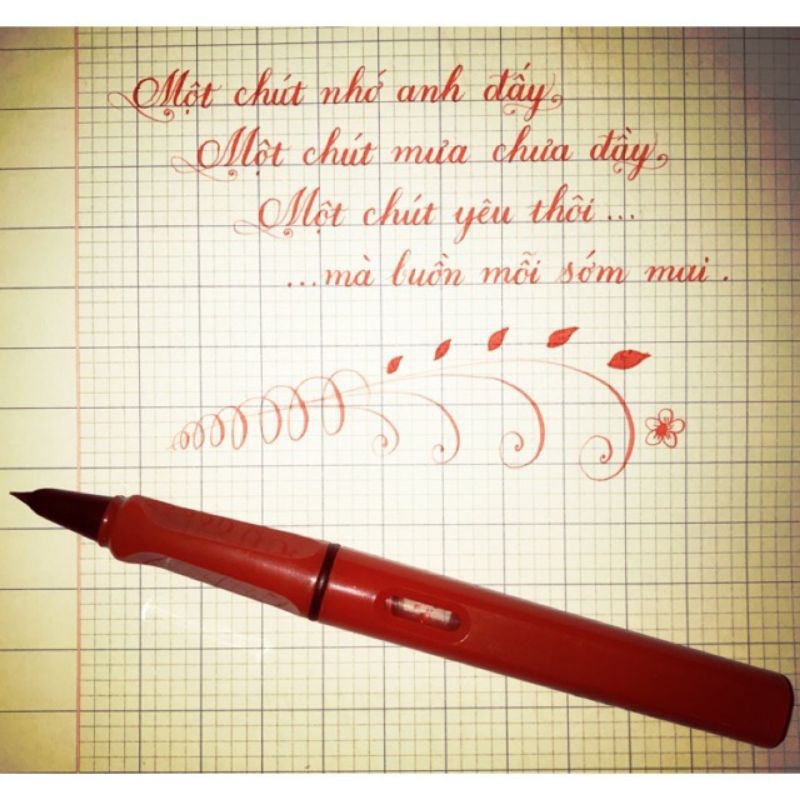 Một chút nhớ anh đấy,
Một chút mưa chưa đầy,
Một chút yêu thôi...
...mà buồn mỗi sớm mai.